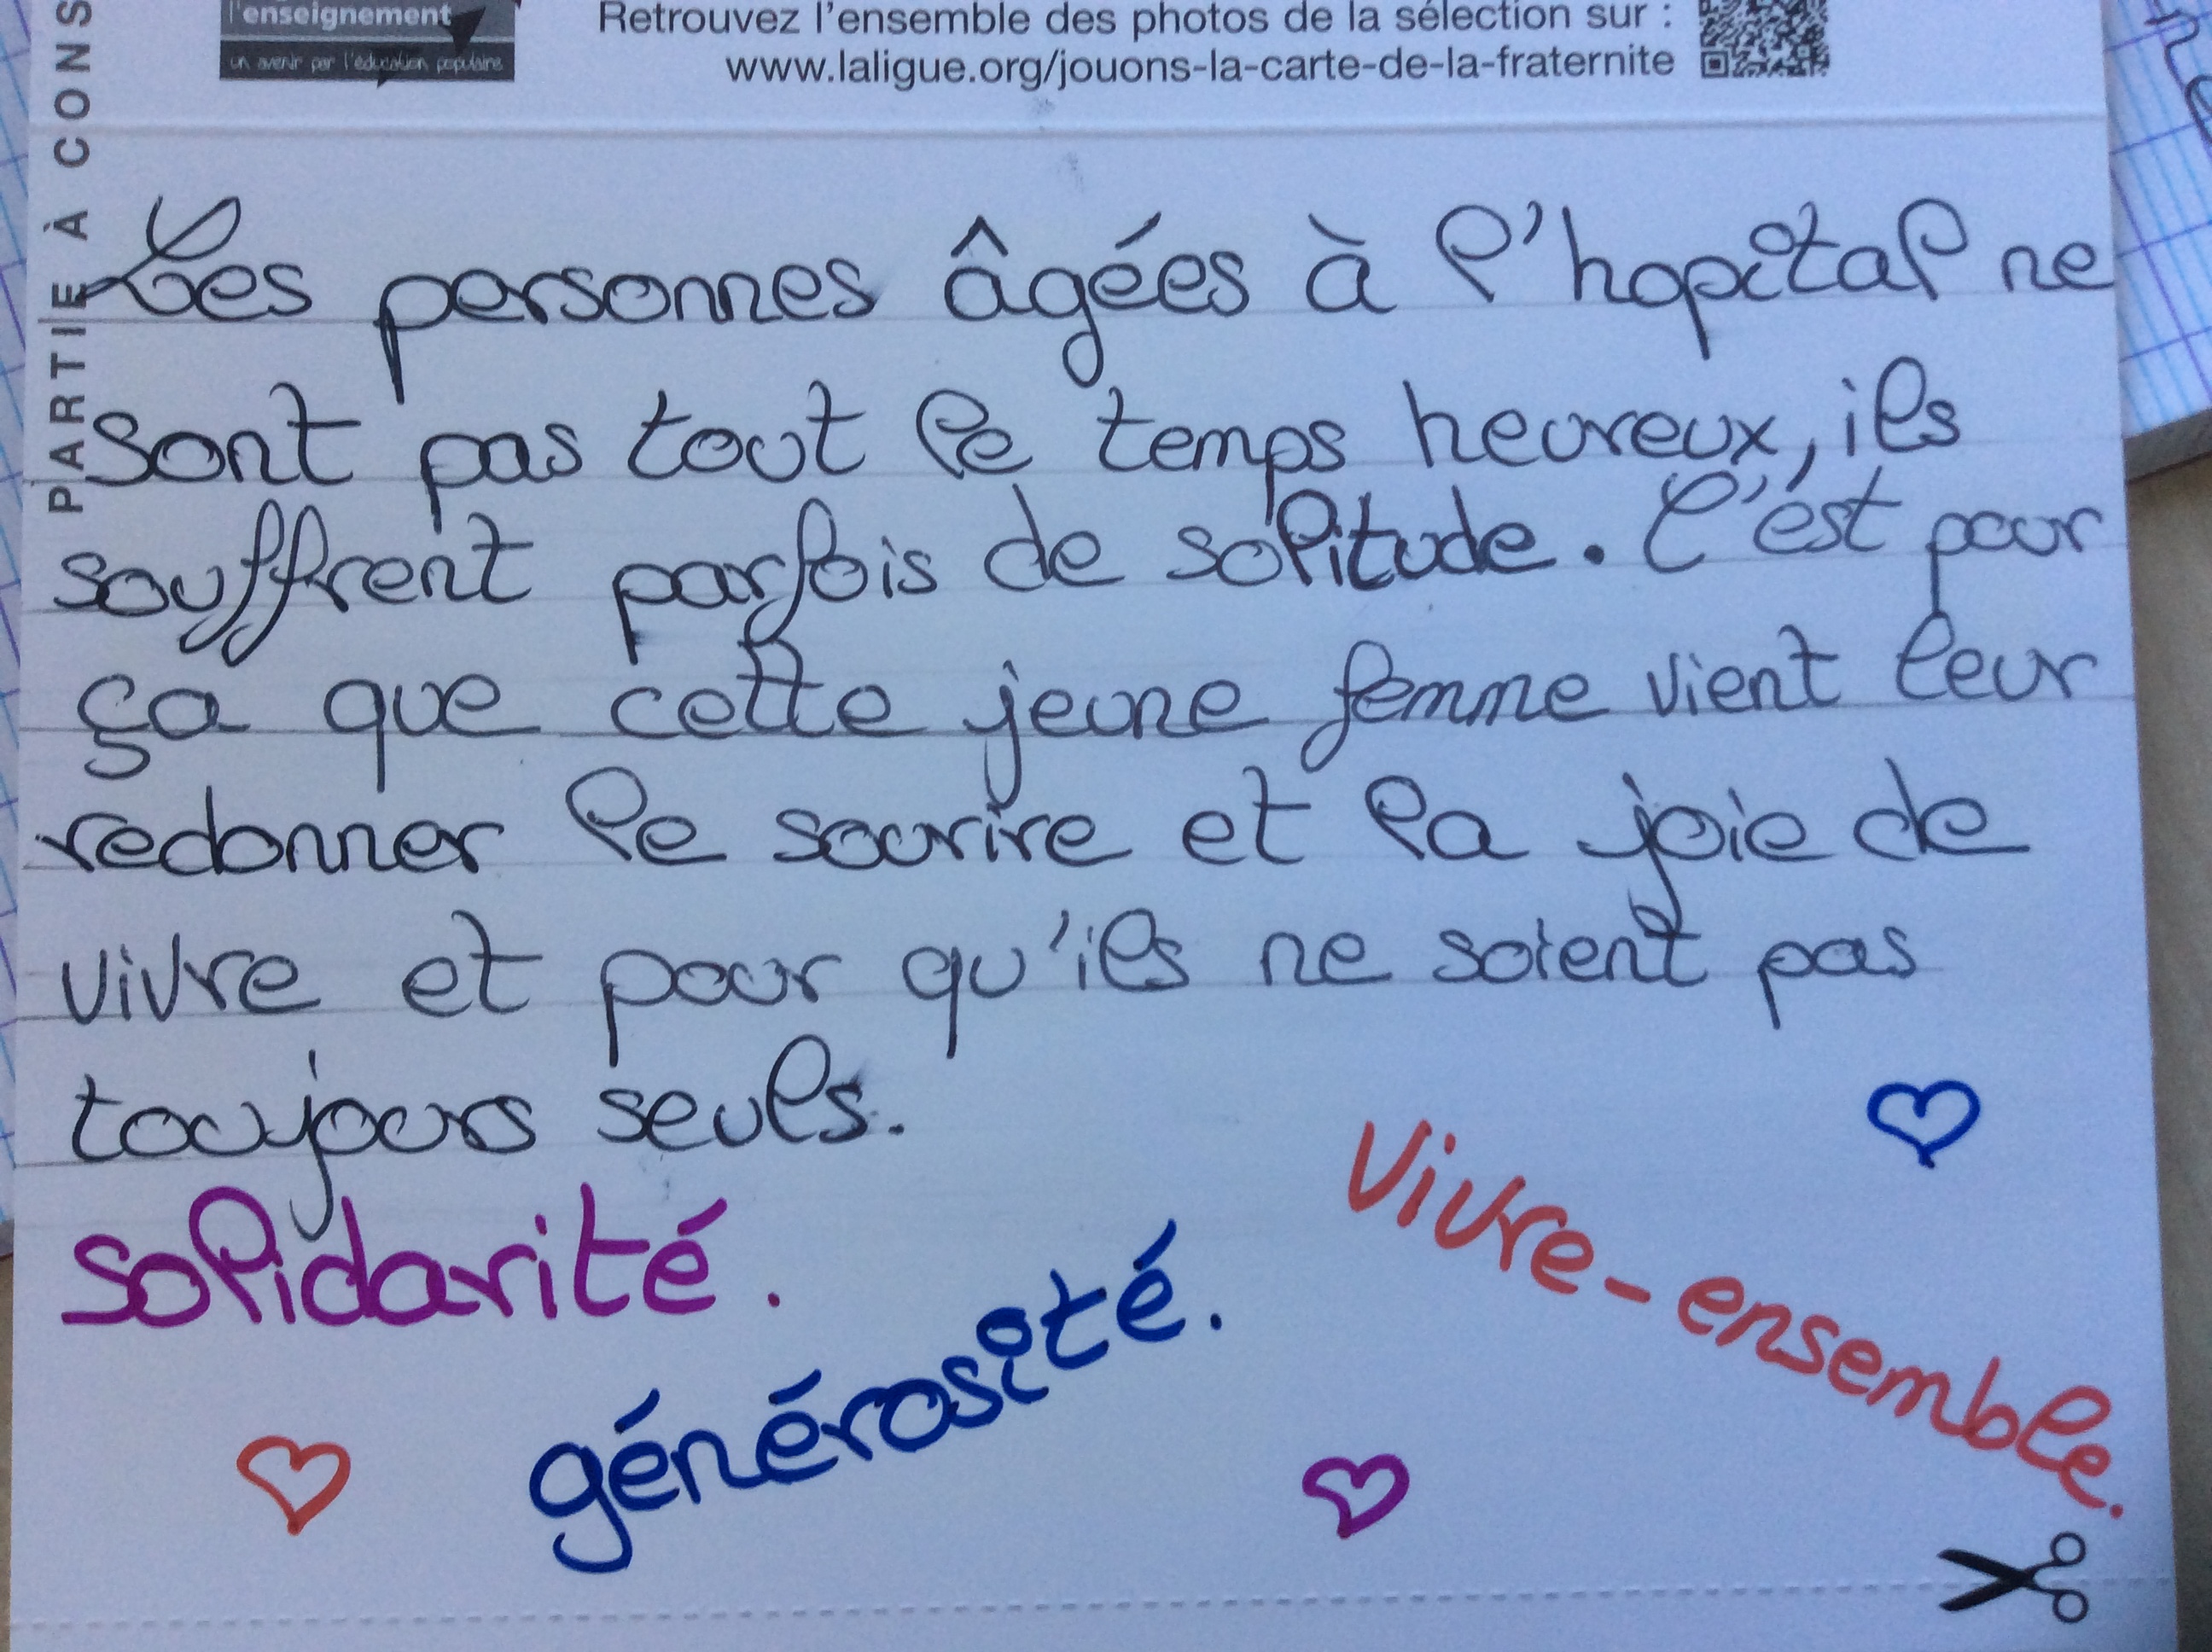 l'enseignement
un avenir par l'éducation populaire
Retrouvez l'ensemble des photos de la sélection sur :
www.laligue.org/jouons-la-carte-de-la-fraternite
PARTIE À CONS
Les personnes âgées à l'hopital ne
sont pas tout le temps heureux, ils
souffrent parfois de solitude. C'est pour
ça que cette jeune femme vient leur
redonner le sourire et la joie de
vivre et pour qu'ils ne soient pas
toujours seuls.
solidarité.
générosité.
Vivre-ensemble.